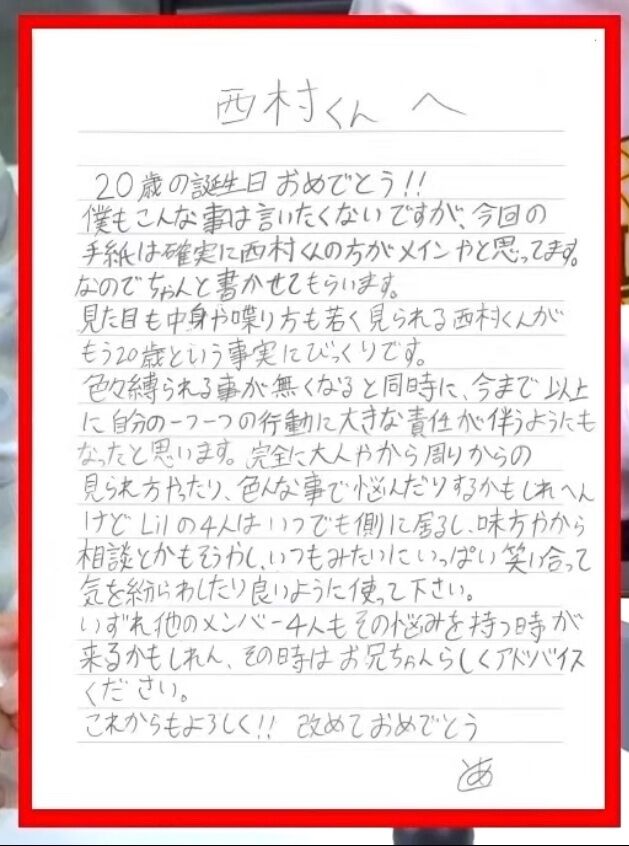 西村くん へ
20歳の誕生日おめでとう!!
僕もこんな事は言いたくないですが、今回の
手紙は確実に西村くんの方がメインやと思ってます。
なのでちゃんと書かせてもらいます。
見た目も中身や喋り方も若く見られる西村くんが
もう20歳という事実にびっくりです。
色々縛られる事が無くなると同時に、今まで以上
に自分の一つ一つの行動に大きな責任が伴うようにも
なったと思います。完全に大人やから周りからの
見られ方やったり、色んな事で悩んだりするかもしれへん
けどLilの4人はいつでも側に居るし、味方やから
相談とかもそうやし、いつもみたいにいっぱい笑い合って
気を紛らわしたり良いように使って下さい。
いずれ他のメンバー4人もその悩みを持つ時が
来るかもしれん、その時はお兄ちゃんらしくアドバイス
ください。
これからもよろしく!! 改めておめでとう